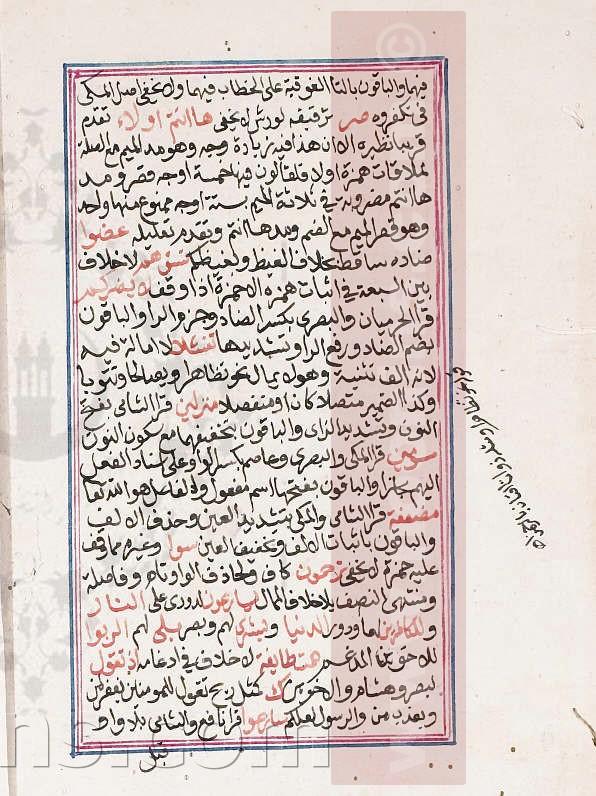 فيهما والباقون بالتاء الفوقية على الخطاب فيهما ولا يخفى اصل المكى
فى تكفروه صر ترقيقه لورش لا يخفى هاانتم اولاء تقدم
قريبا نظيره الا ان هذا فيه زيادة وجه وهو مد الميم مع الصلة
لملاقات همزة اولا فلقالون فيها خمسة اوجه قصر ومد
هاانتم مضروبة فى ثلاثة الميم بستة اوجه ممنوع منها واحد
وهو قصر الميم مع الضم ومد هاانتم وتقدم تعليله عضوا
ضاده ساقط بخلاف الغيظ وبغيظكم تسؤهم لا خلاف
بين السبعة فى اثبات همزه الا حمزة اذا وقف لا يضركم
قرا الحرميان والبصرى بكسر الضاد وجزم الرا والباقون
بضم الضاد ورفع الرا وتشديدها تفشلا لا امالة فيه
لانه الف تثنية وهو لا يمال نحو تظاهرا ويصالحا وتتوبا
وكذا الضمير متصلا كان او منفصلا منزلين قرا الشامى بفتح
النون وتشديد الزاى والباقون بتخفيفها مع سكون النون
مسومين قرا المكى والبصرى وعاصم بكسر الواو على اسناد الفعل
اليهم مجازا والباقون بفتحها اسم مفعول والفاعل هو الله تعا
مضعفة قرا الشامى والمكى بتشديد العين وحذف الالف
والباقون باثبات الالف وتخفيف العين سوا وغيره مما وقف
عليه حمزة لا يخفى ترحمون كاف وقيل حاذف الواو تام وفاصلة
ومنتهى النصف بلا خلاف الممال يسارعون لدورى على النار
والكافرين لهما ودورى الدنيا وبشرى لهم وبصر بلى لهم الربوا
للاخوين المدغم همت طايفة لا خلاف فى ادغامه اذ تقول
لبصر وهشام والاخوين ك كمثل ريح تقول للمومنين يغفر لمن
ويعذب من والرسول لعلكم سارعوا قرا نافع والشامى بلا واو
قبل